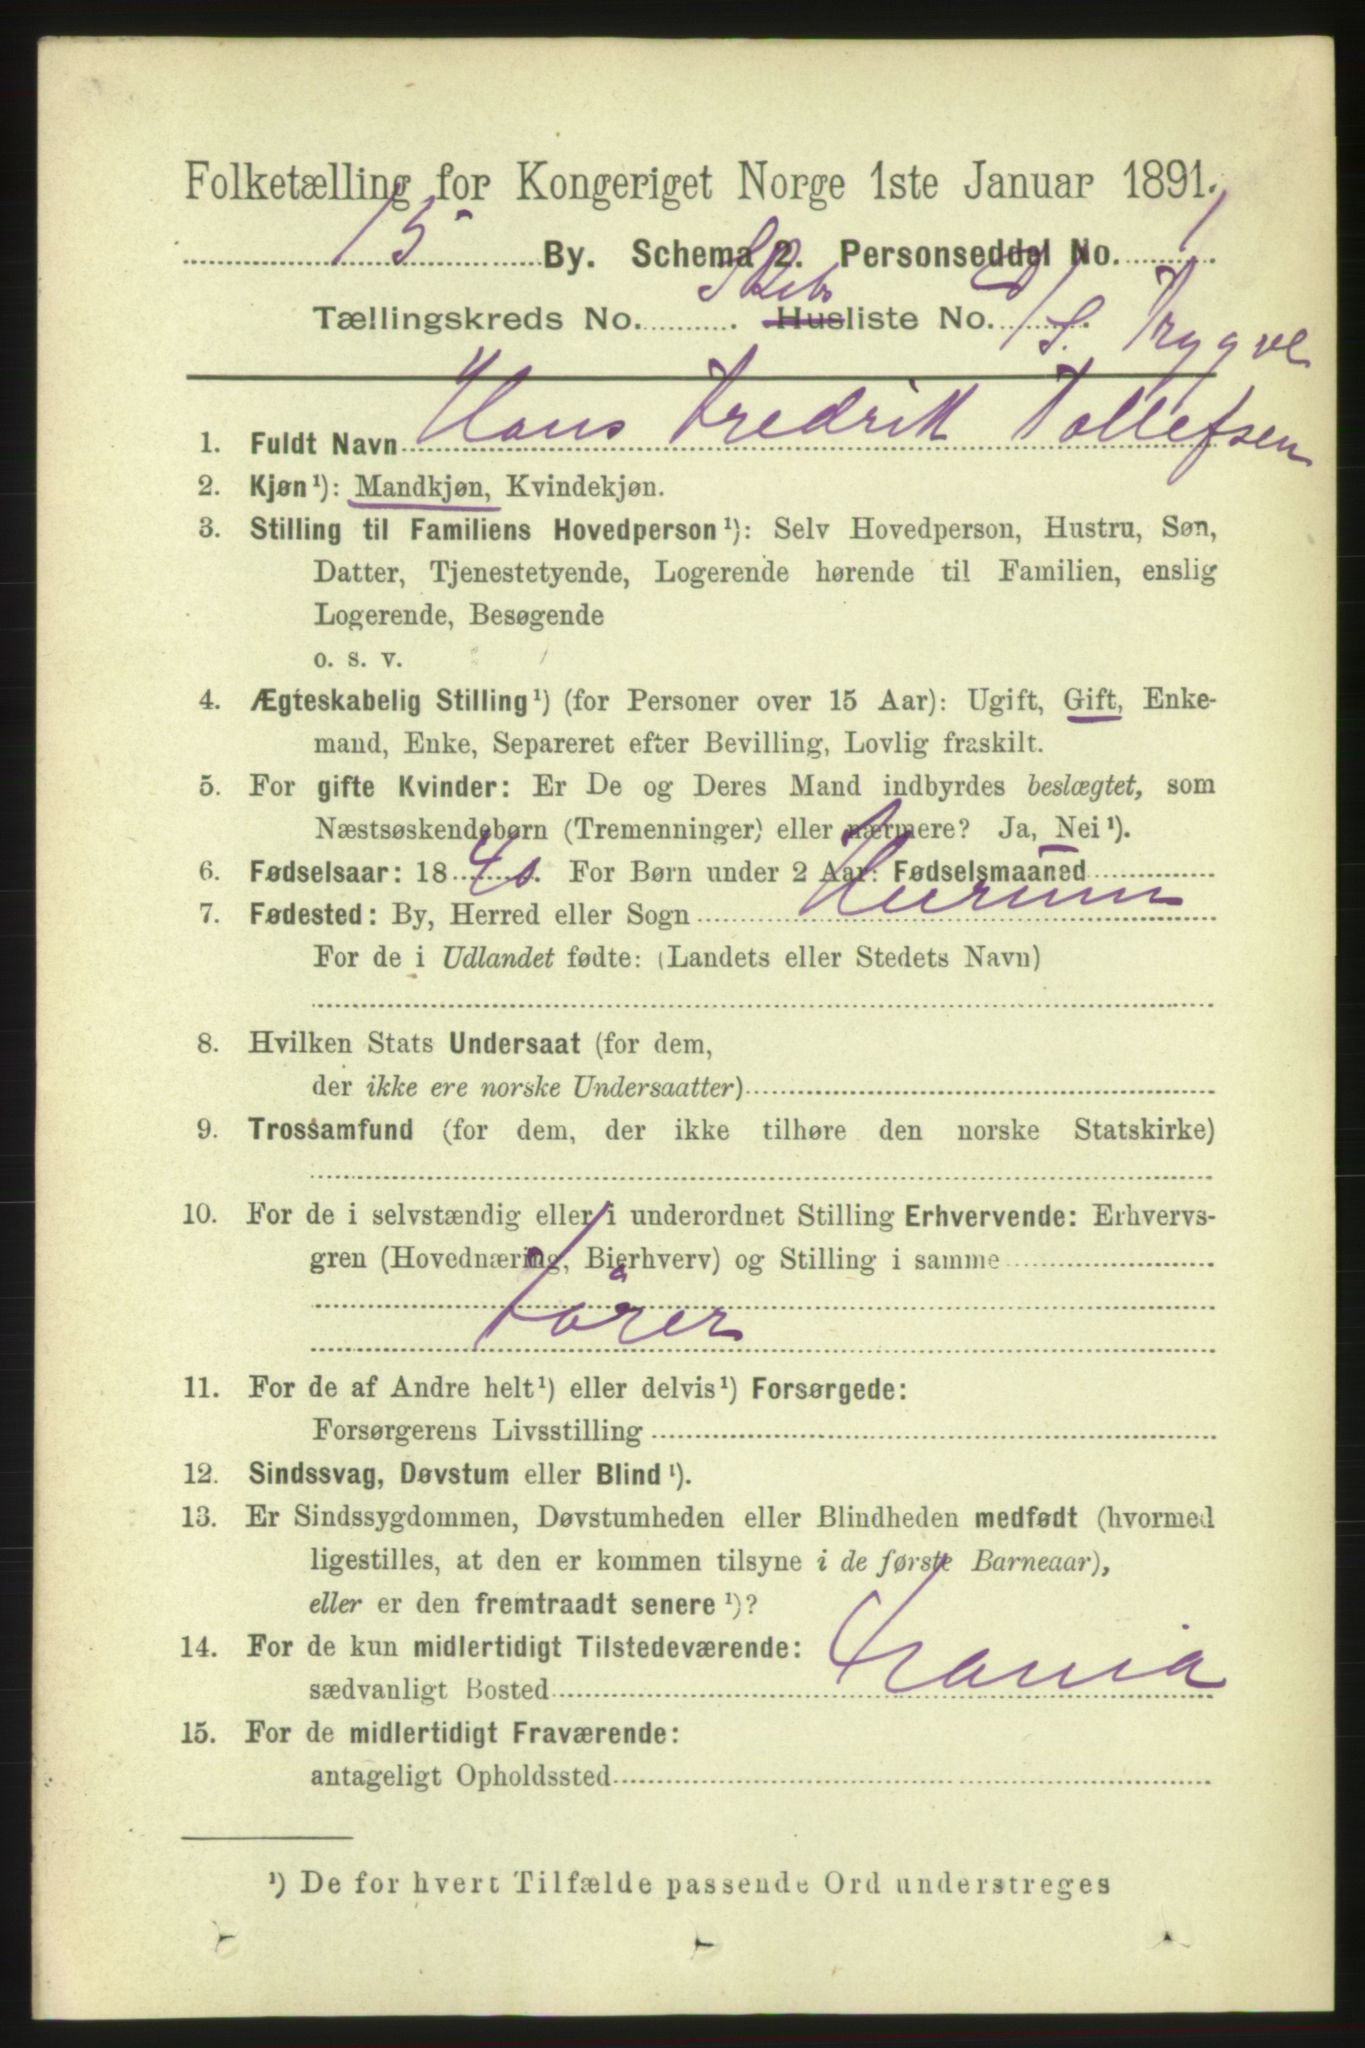 Folketælling for Kongeriget Norge 1ste Januar 1891.
15 By. Schema 2. Personseddel No. 1
Tællingskreds No. Skibs Husliste No. D/S. Trygve
1. Fuldt Navn Hans Fredrik Tollefsen
2. Kjøn¹): Mandkjøn, Kvindekjøn.
3. Stilling til Familiens Hovedperson¹): Selv Hovedperson, Hustru, Søn,
Datter, Tjenestetyende, Logerende hørende til Familien, enslig
Logerende, Besøgende
o. s. v.
4. Ægteskabelig Stilling¹) (for Personer over 15 Aar): Ugift, Gift, Enke-
mand, Enke, Separeret efter Bevilling, Lovlig fraskilt.
5. For gifte Kvinder: Er De og Deres Mand indbyrdes beslægtet, som
Næstsøskendebørn (Tremenninger) eller nærmere? Ja, Nei¹).
6. Fødselsaar: 1840. For Børn under 2 Aar: Fødselsmaaned
7. Fødested: By, Herred eller Sogn Hurum
For de i Udlandet fødte: (Landets eller Stedets Navn)
8. Hvilken Stats Undersaat (for dem,
der ikke ere norske Undersaatter)
9. Trossamfund (for dem, der ikke tilhøre den norske Statskirke)
10. For de i selvstændig eller i underordnet Stilling Erhvervende: Erhvervs-
gren (Hovednæring, Bierhverv) og Stilling i samme
Förer
11. For de af Andre helt¹) eller delvis¹) Forsørgede:
Forsørgerens Livsstilling
12. Sindssvag, Døvstum eller Blind¹).
13. Er Sindssygdommen, Døvstumheden eller Blindheden medfødt (hvormed
ligestilles, at den er kommen tilsyne i de første Barneaar),
eller er den fremtraadt senere¹)?
14. For de kun midlertidigt Tilstedeværende:
sædvanligt Bosted
15. For de midlertidigt Fraværende:
antageligt Opholdssted
¹) De for hvert Tilfælde passende Ord understreges